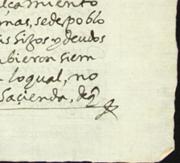 camiento
mas, se despoblo
as hijos y deudos
ubieron siem
loqual, no
hacienda, de q